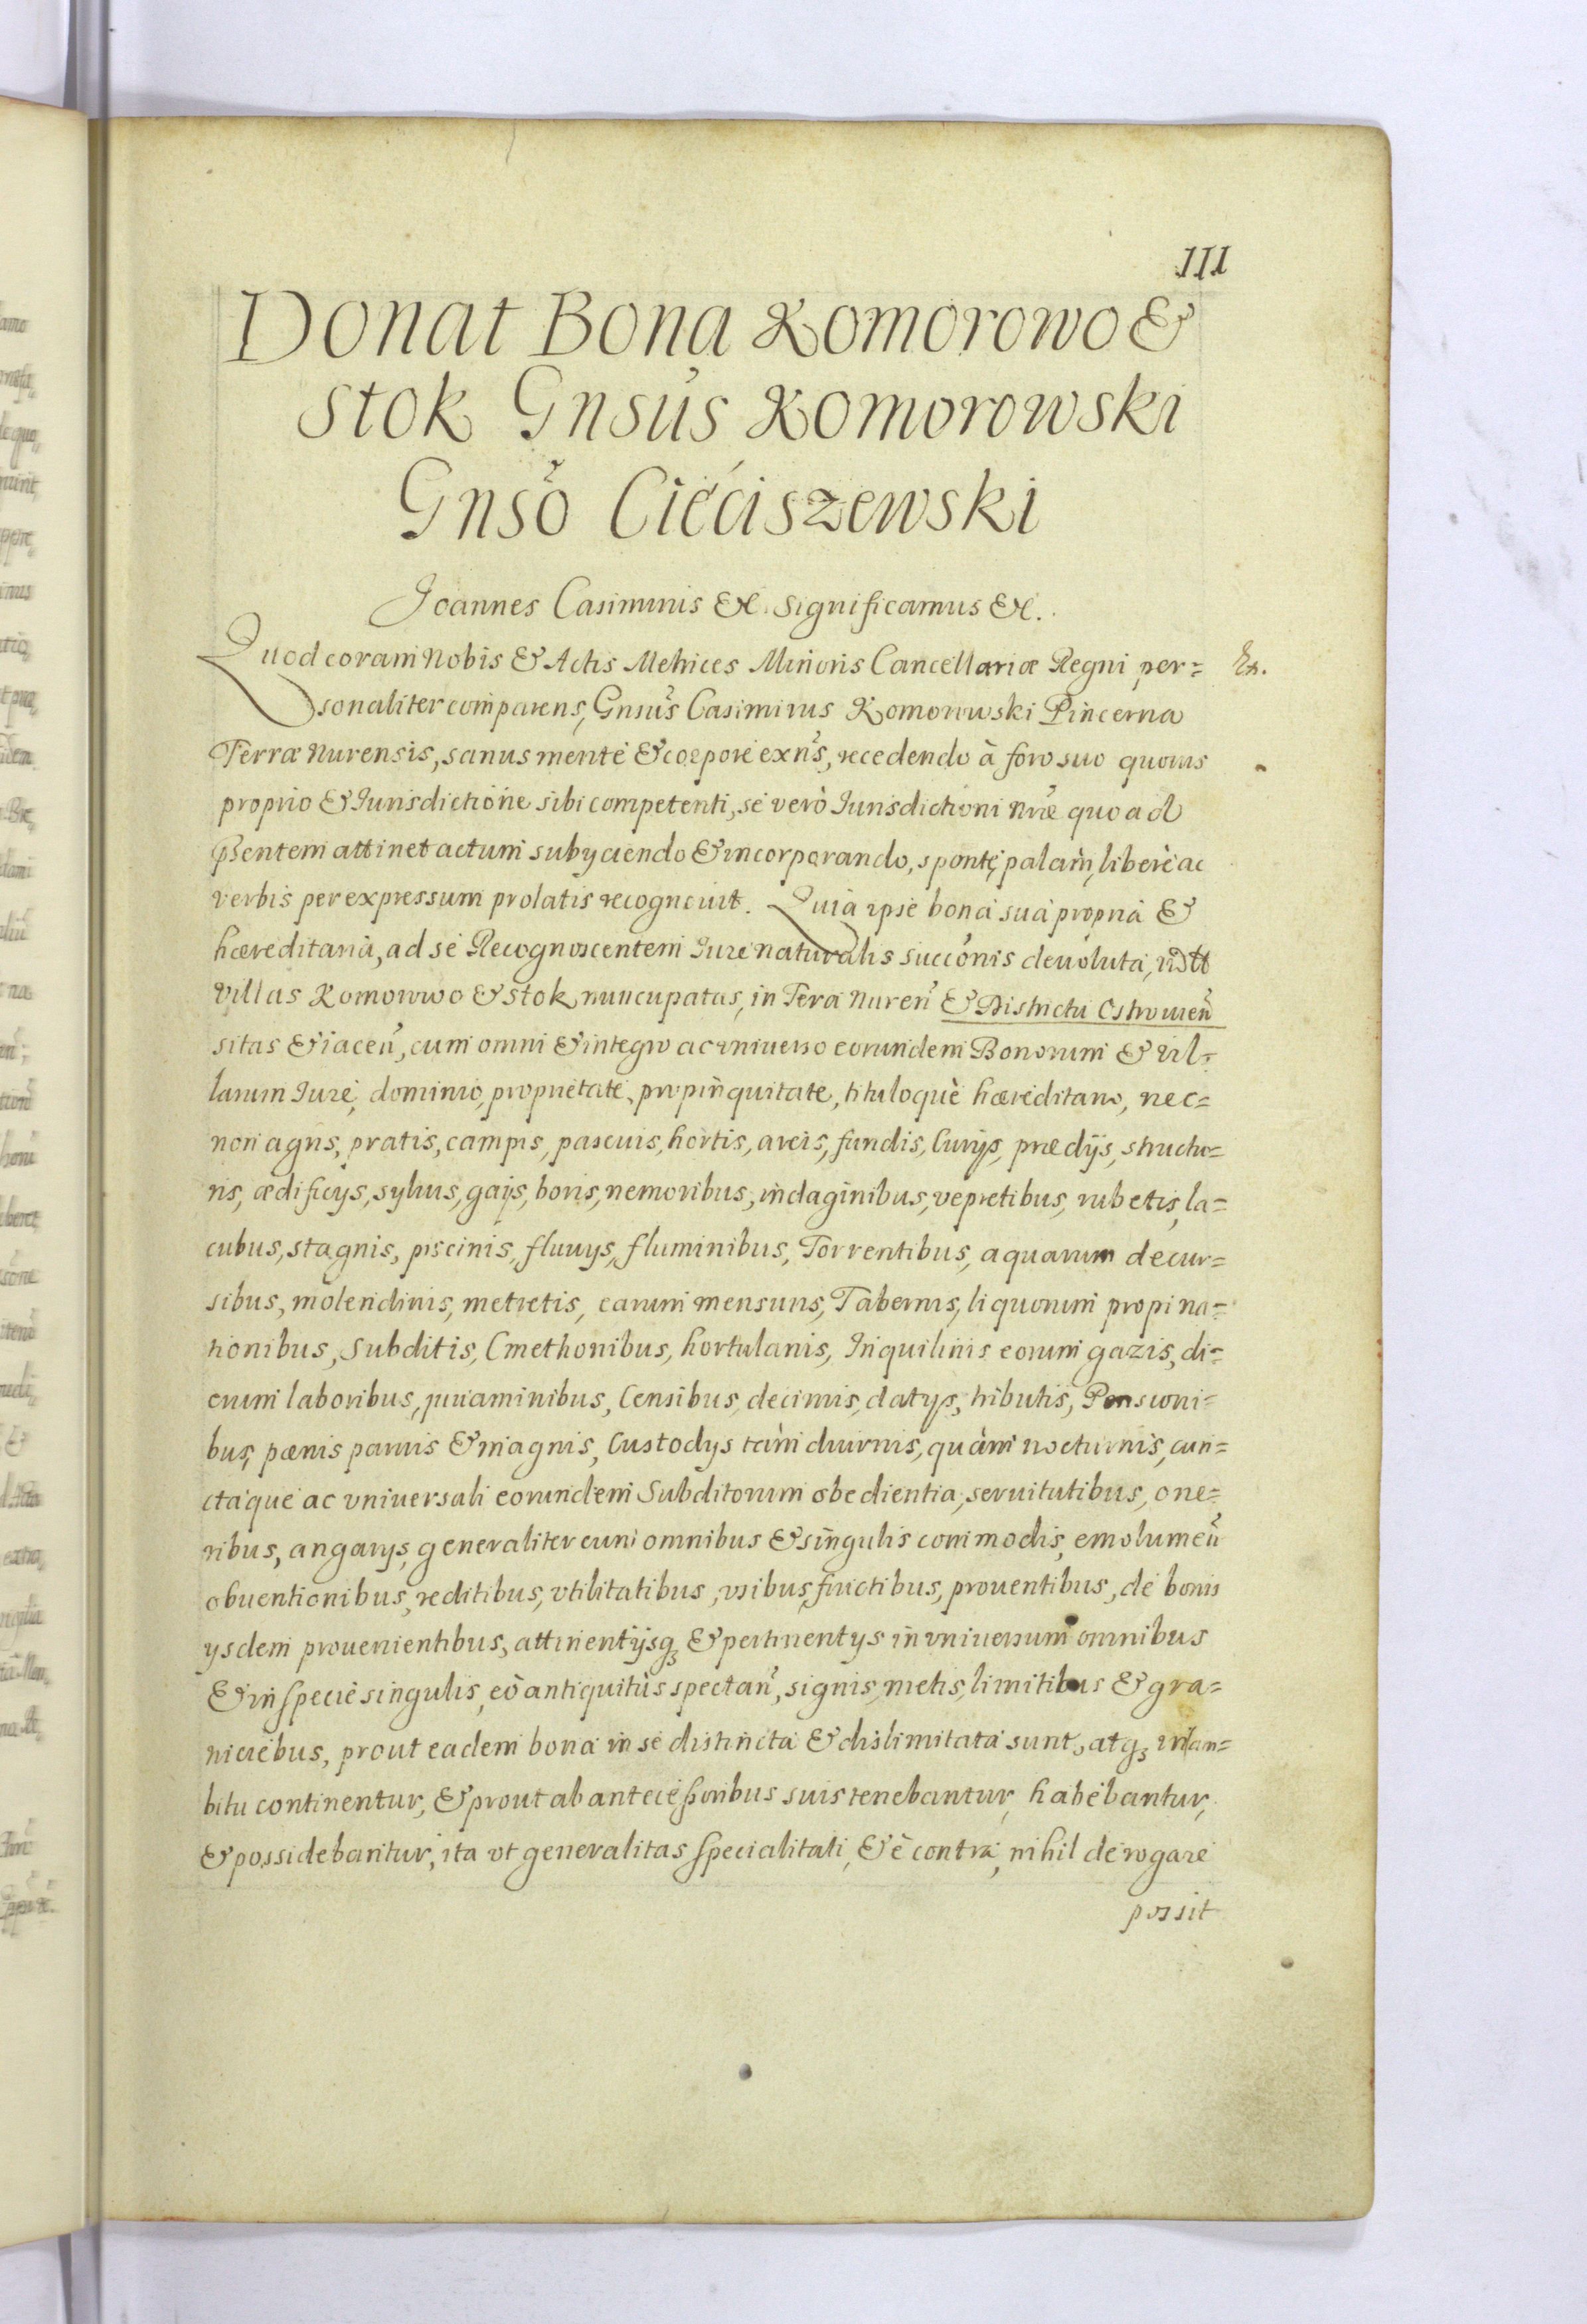 111
Donat Bona Komorowo &
Stok Gnsus Komorowski
Gnso Cieciszewski
Joannes Casimirus &c. Significamus &c.
Quod coram Nobis & Actis Metrices Minoris Cancellariæ Regni per=
sonaliter comparens, Gnsus Casimirus Komorowski Pincerna
Terræ Nurensis, sanus mente & corpore exns, recedendo à foro suo quouis
proprio & Iurisdictione sibi competenti, se verò Iurisdictioni nræ quo ad
pñsentem attinet actum subyciendo & incorporando, sponte, palam, liberè ac
verbis per expressum prolatis recognouit. Quia ipse bona sua propria &
hæreditaria, ad se Recognoscentem Iure naturalis succonis deuoluta, vdtt
villas Komorowo & Stok nuncupatas, in Terra Nuren & Districtu Ostrouien
sitas & iacen, cum omni & integro ac vniuerso eorundem Bonorum & vil=
larum Iure, dominio, proprietate, propinquitate, tituloquè hæreditario, nec=
non agris, pratis, campis, pascuis, hortis, areis, fundis, Curijs, prædijs, structu=
ris, ædificys, syluis, gaijs, boris, nemoribus, indaginibus, vepretibus, rubetis, la=
cubus, stagnis, piscinis, fluuys, fluminibus, Torrentibus, aquarum decur=
sibus, molendinis, metretis, earum mensuris, Tabernis, liquorum propina=
tionibus, Subditis, Cmethonibus, hortulanis, Inquilinis eorum gazis, di=
erum laboribus, iuuaminibus, Censibus, decimis, datys, tributis, Pensioni=
bus, pænis paruis & magnis, Custodys tàm diurnis, quàm nocturnis, cun=
ctaque ac vniuersali eorundem Subditorum obedientia, seruitutibus, one=
ribus, angarys, generaliter cum omnibus & singulis commodis, emolumen
obuentionibus, reditibus, vtilitatibus, vsibus, fructibus, prouentibus, de bonis
ysdem prouenientibus, attinentijsq3 & pertinentys in vniuersum omnibus
& in specie singulis, eò antiquitùs spectan, signis, metis, limitibus & gra=
niciebus, prout eadem bona in se distincta & dislimitata sunt, atq3 in an=
bitu continentur, & prout ab antecessoribus suis tenebantur, habebantur,
& possidebantur, ita vt generalitas specialitati, & è contra, nihil derogare
possit